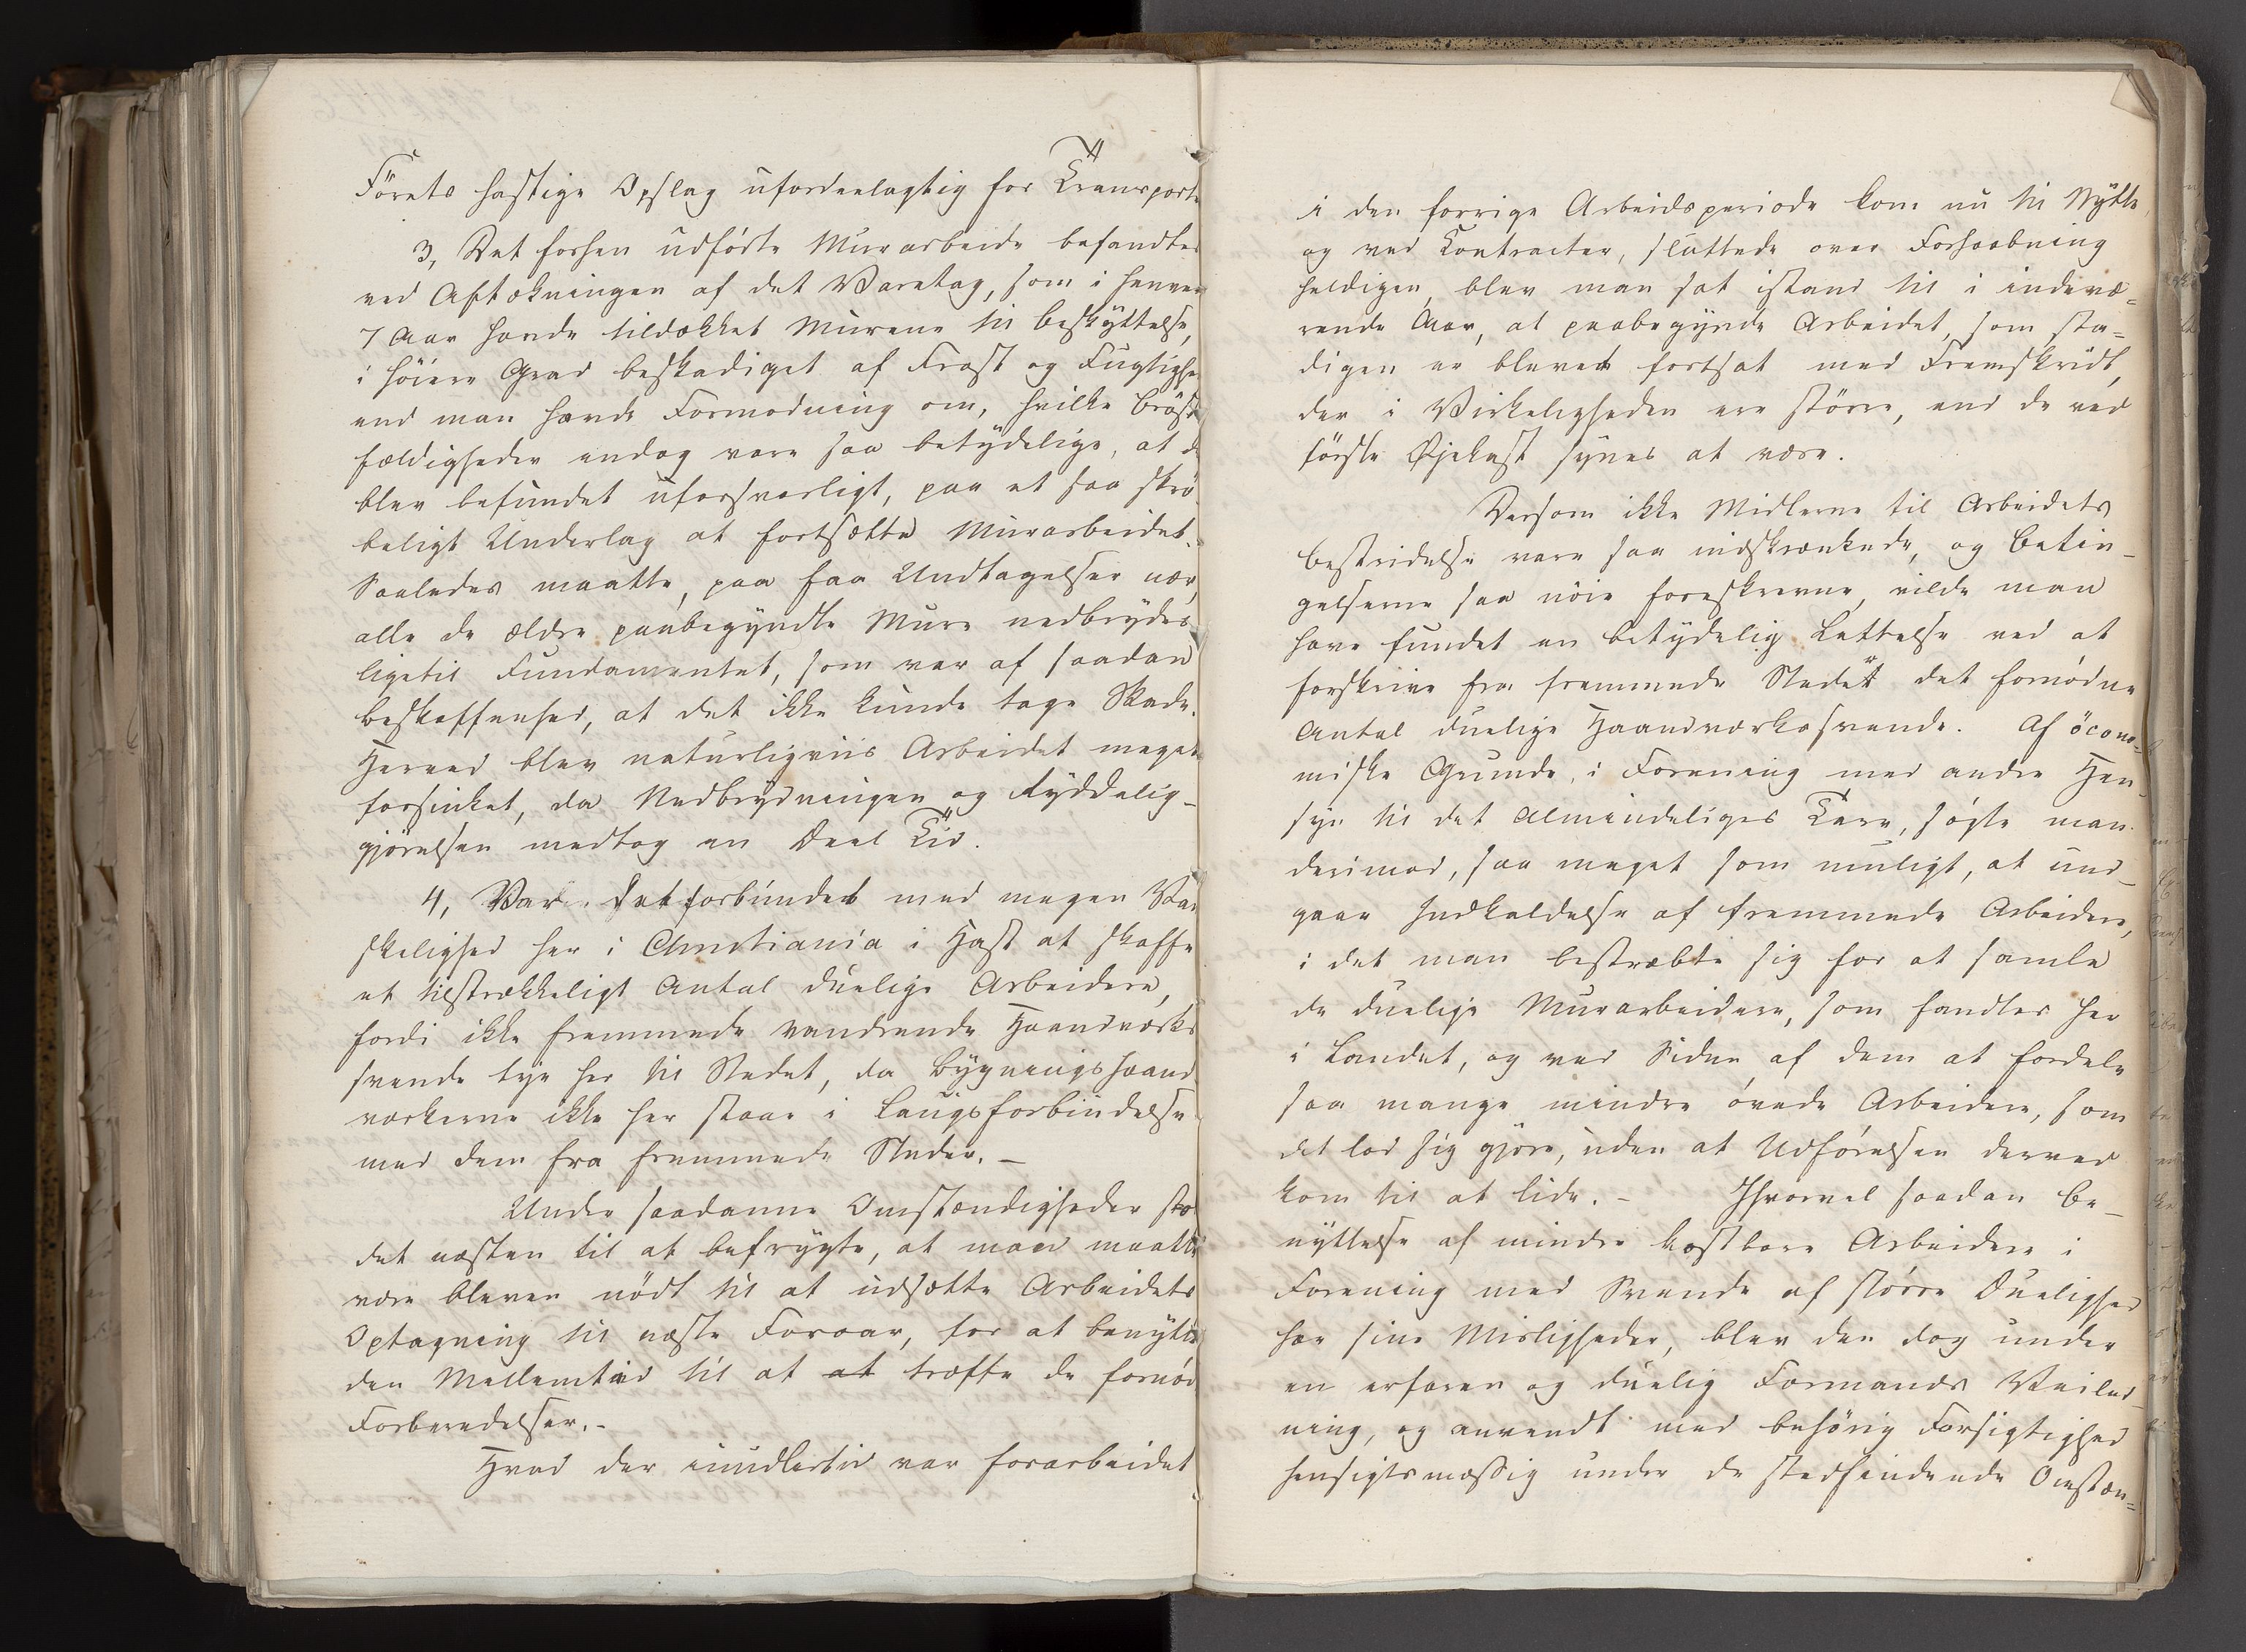 Förets hastige Opslag ufordeelagtig for Transporte
3, Det forhen udförte Murarbeide befandtes
ved Aftækningen af det Varetag, som i henven
7 Aar havde tildækket Murene til Beskyttelse,
i höiere Grad beskadiget af Frost og Fugtighe
end man havde Formodning om, hvilke Bröst
fældigheder endog vare saa betydelige, at d
blev befundet uforsvarligt, paa et saa skrö
beligt Underlag at fortsætte Murarbeidet.
Saaledes maatte, paa faa Undtagelser nær,
alle de ældre paabegyndte Mure nedbrydes
ligetil Fundamentet, som var af saadan
Beskaffenhed, at det ikke kunde tage Skade.
Herved blev naturligviis Arbeidet meget
forsinket, da Nedbrydningen og Ryddelig-
gjörelsen medtog en Deel Tid.
4, Var det forbundet med megen Van
skelighed her i Christiania i Hast at skaffe
et tilstrækkeligt Antal duelige Arbeidere,
fordi ikke fremmede vandrende Haandværks
svende tye her til Stedet, da Bygningshaand
værkerne ikke her staae i Laugsforbindelse
med dem fra fremmede Steder. –
Under saadanne Omstændigheder sto
det næsten til at befrygte, at man maatte
være bleven nödt til at udsætte Arbeidets
Optagning til næste Foraar, for at benytte
den Mellemtid til at at træffe de fornöd
Forberedelser. –
Hvad der imidlertid var forarbeidet
i den forrige Arbeidsperiode kom nu til Nytte,
og ved Contracter, sluttede over Forhaabning
heldigen, blev man sat istand til i indevæ=
rende Aar, at paabegynde Arbeidet, som sta=
digen er blevet fortsat med Fremskridt,
der i Virkeligheden ere större, end de ved
förste Øjekast synes at være.
Dersom ikke Midlerne til Arbeidets
Bestridelse vare saa indskrænkede, og Betin-
gelserne saa nöie foreskrevne, vilde man
have fundet en betydelig Lettelse ved at
forskrive fra fremmede Steder det fornödne
Antal duelige Haandværkssvende. Af öcono=
miske Grunde, i Forening med andre Hen-
syn til det Almindeliges Tarv, sögte man
derimod, saa meget som muligt, at und-
gaae Indkaldelse af fremmede Arbeidere,
i det man bestræbte sig for at samle
de duelige Murarbeidere, som fandtes her
i Landet, og ved Siden af dem at fordele
saa mange mindre övede Arbeidere, som
det lod sig gjöre, uden at Udförelsen derved
kom til at lide. – Ihvorvel saadan Be-
nyttelse af mindre kostbare Arbeidere i
Forening med Svende af större Duelighed
har sine Misligheder, blev den dog under
en erfaren og duelig Formands Veiled-
ning, og anvendt med behörig Forsigtighed
hensigtsmæssig under de stedfindende Omstæn=